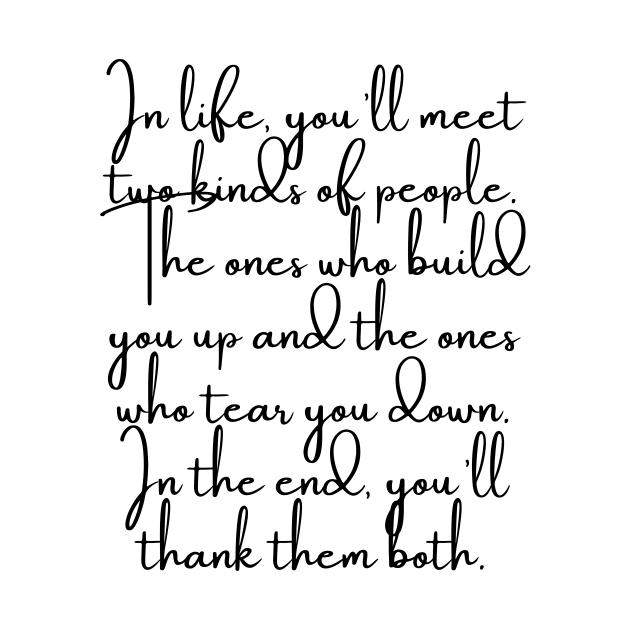 In life, you'll meet
two kinds of people.
The ones who build
you up and the ones
who tear you down.
In the end, you'll
thank them both.